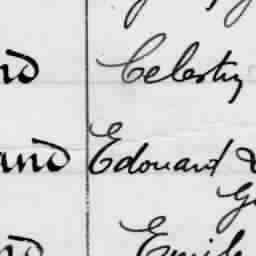 nd Celestin
and Edouard &
nd Emile